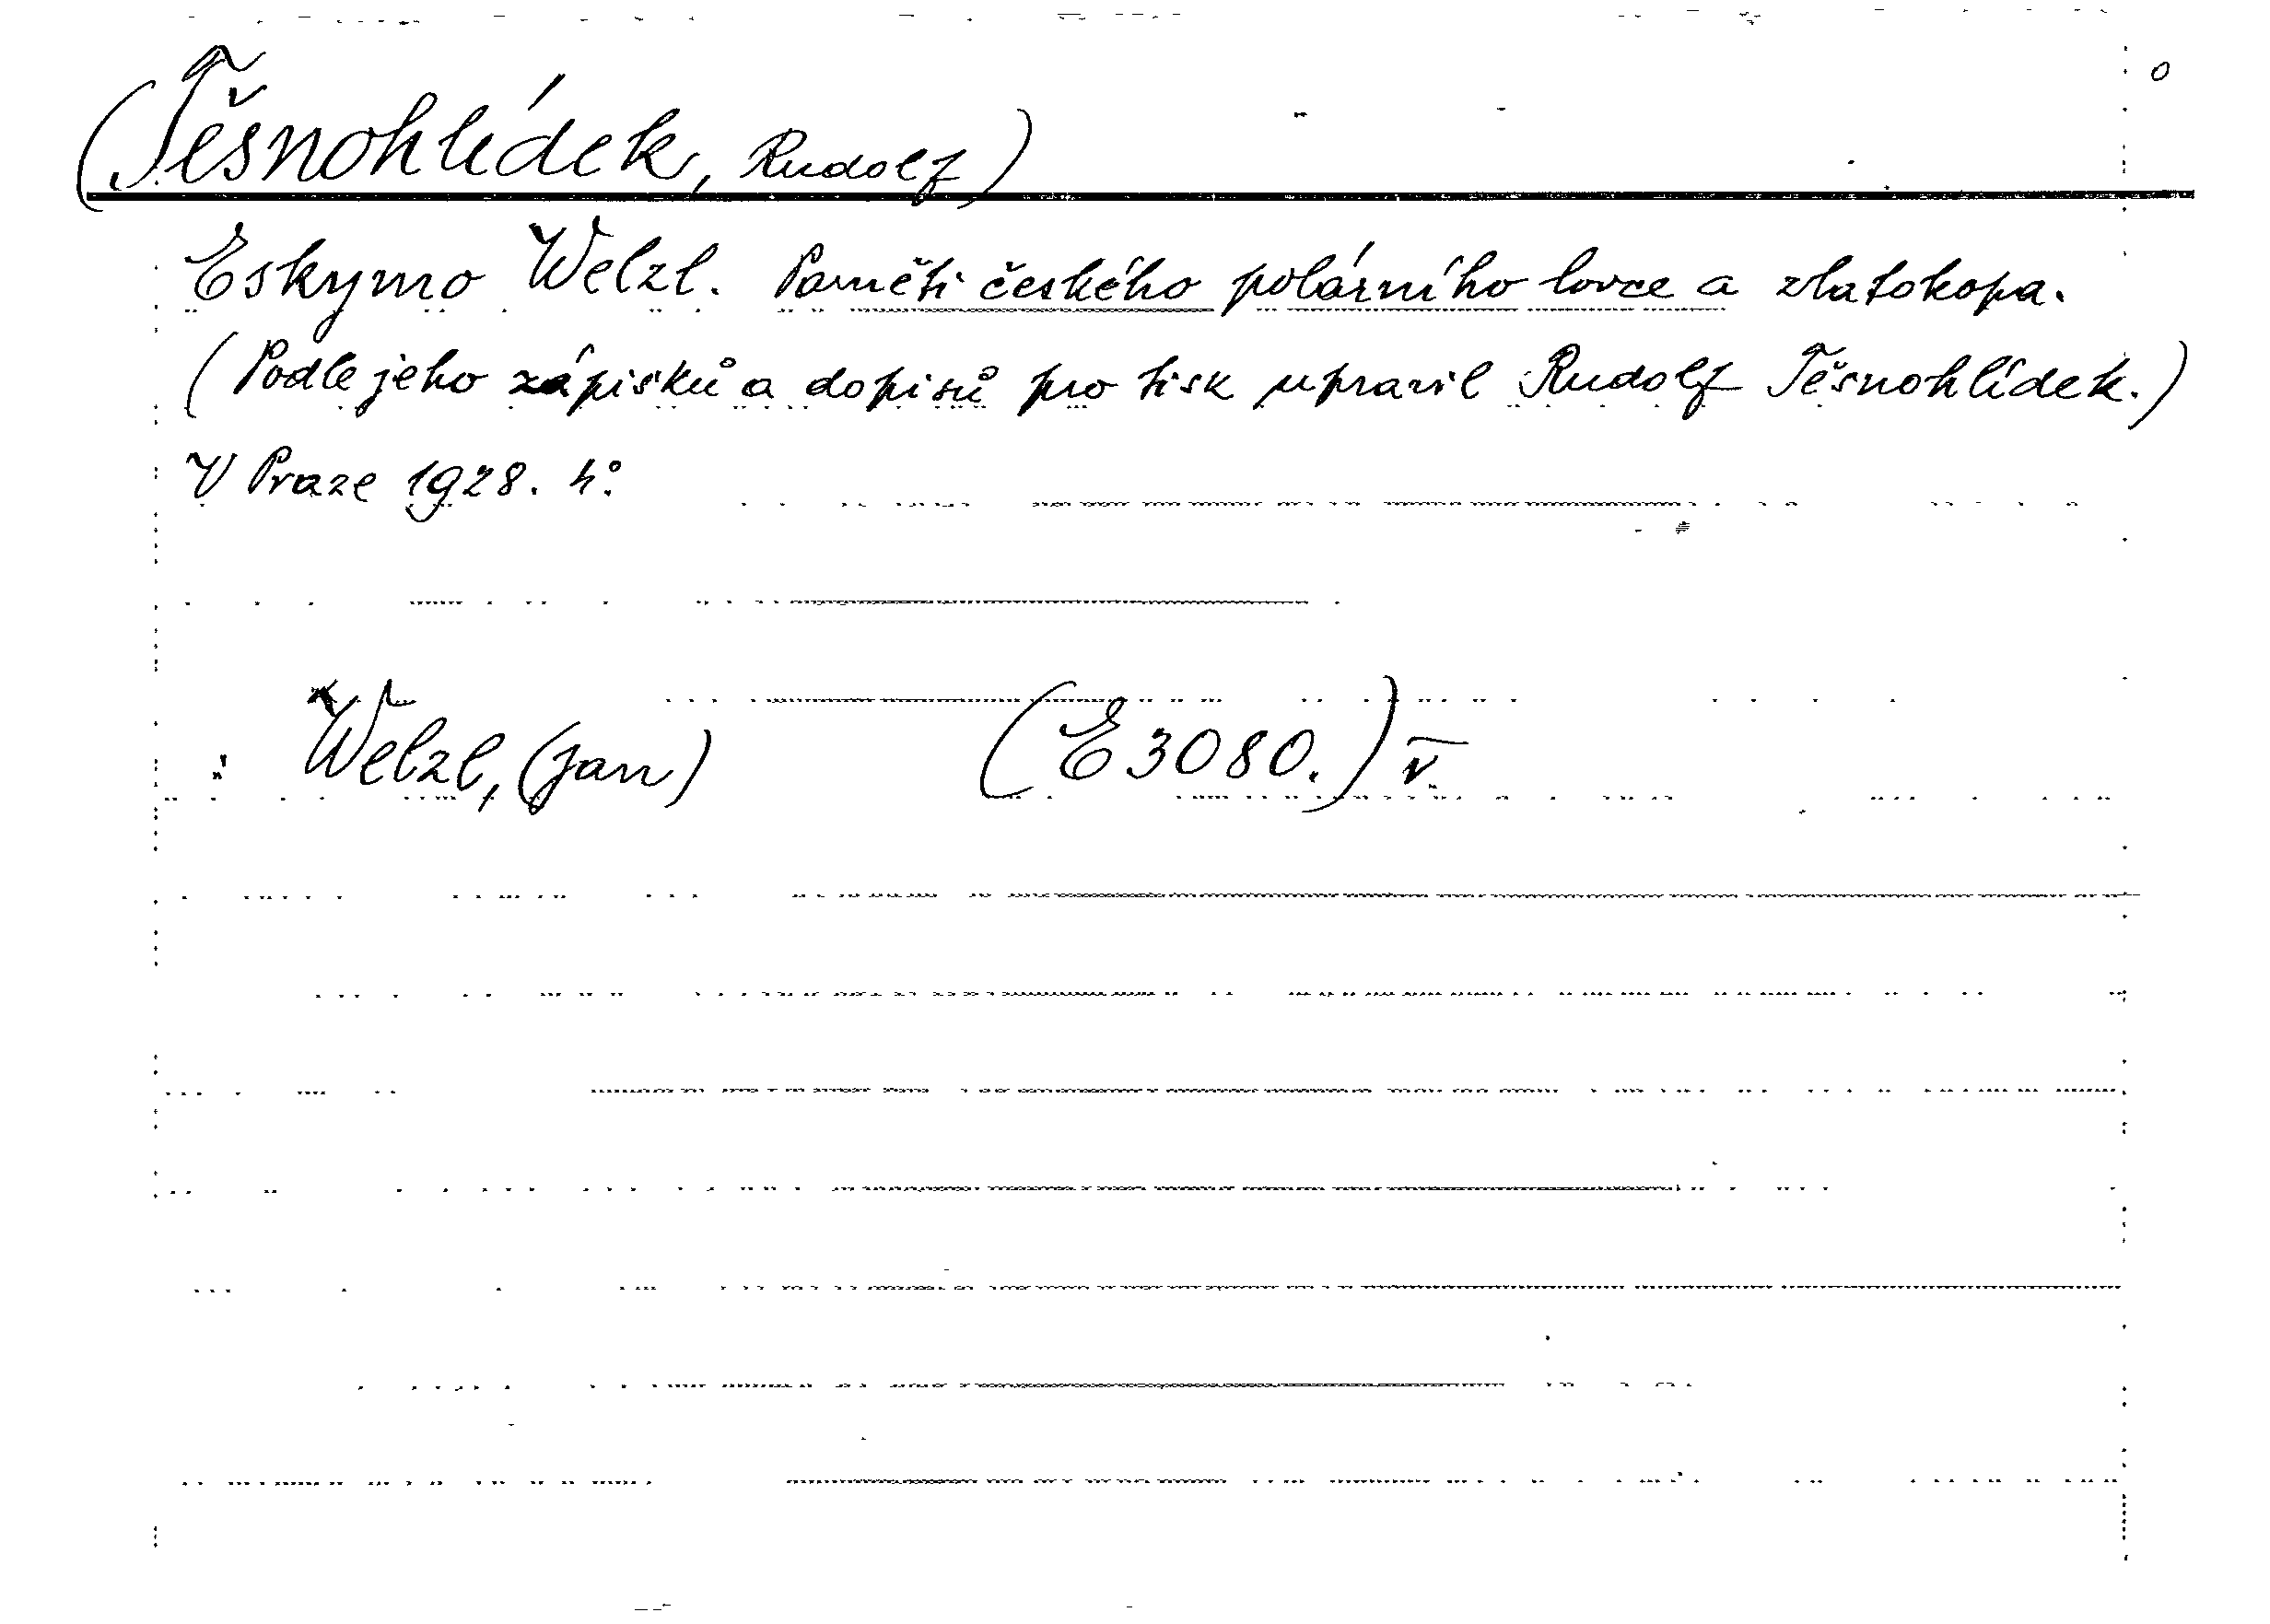 (Těsnohlídek, Rudolf)
Eskymo Welzl. Paměti českého polárního lovce a zlatokopa.
(Podle jeho zápisků a dopisů pro tisk upravil Rudolf Těsnohlídek.)
V Praze 1928. 4°.
Welzl, (Jan) (E 3080.) v.